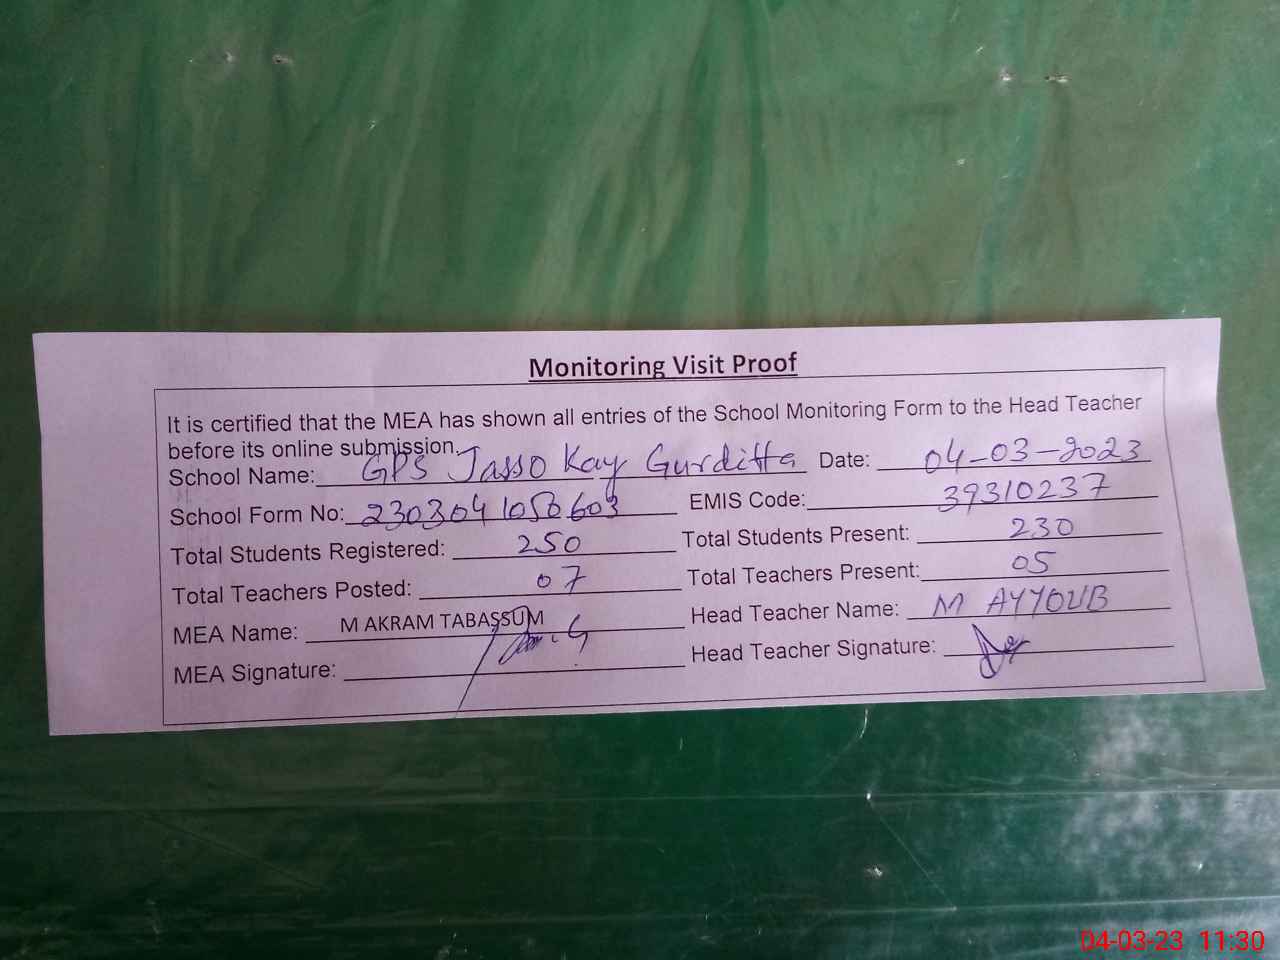 Monitoring Visit Proof
It is certified that the MEA has shown all entries of the School Monitoring Form to the Head Teacher
before its online submission.
School Name: GPS Jasso Kay Gurditta Date: 04-03-2023
School Form No: 2303041050603 EMIS Code: 39310237
Total Students Registered: 250 Total Students Present: 230
Total Teachers Posted: 07 Total Teachers Present: 05
MEA Name: M AKRAM TABASSUM Head Teacher Name: M AYYOUB
MEA Signature: Head Teacher Signature:
04-03-23 11:30